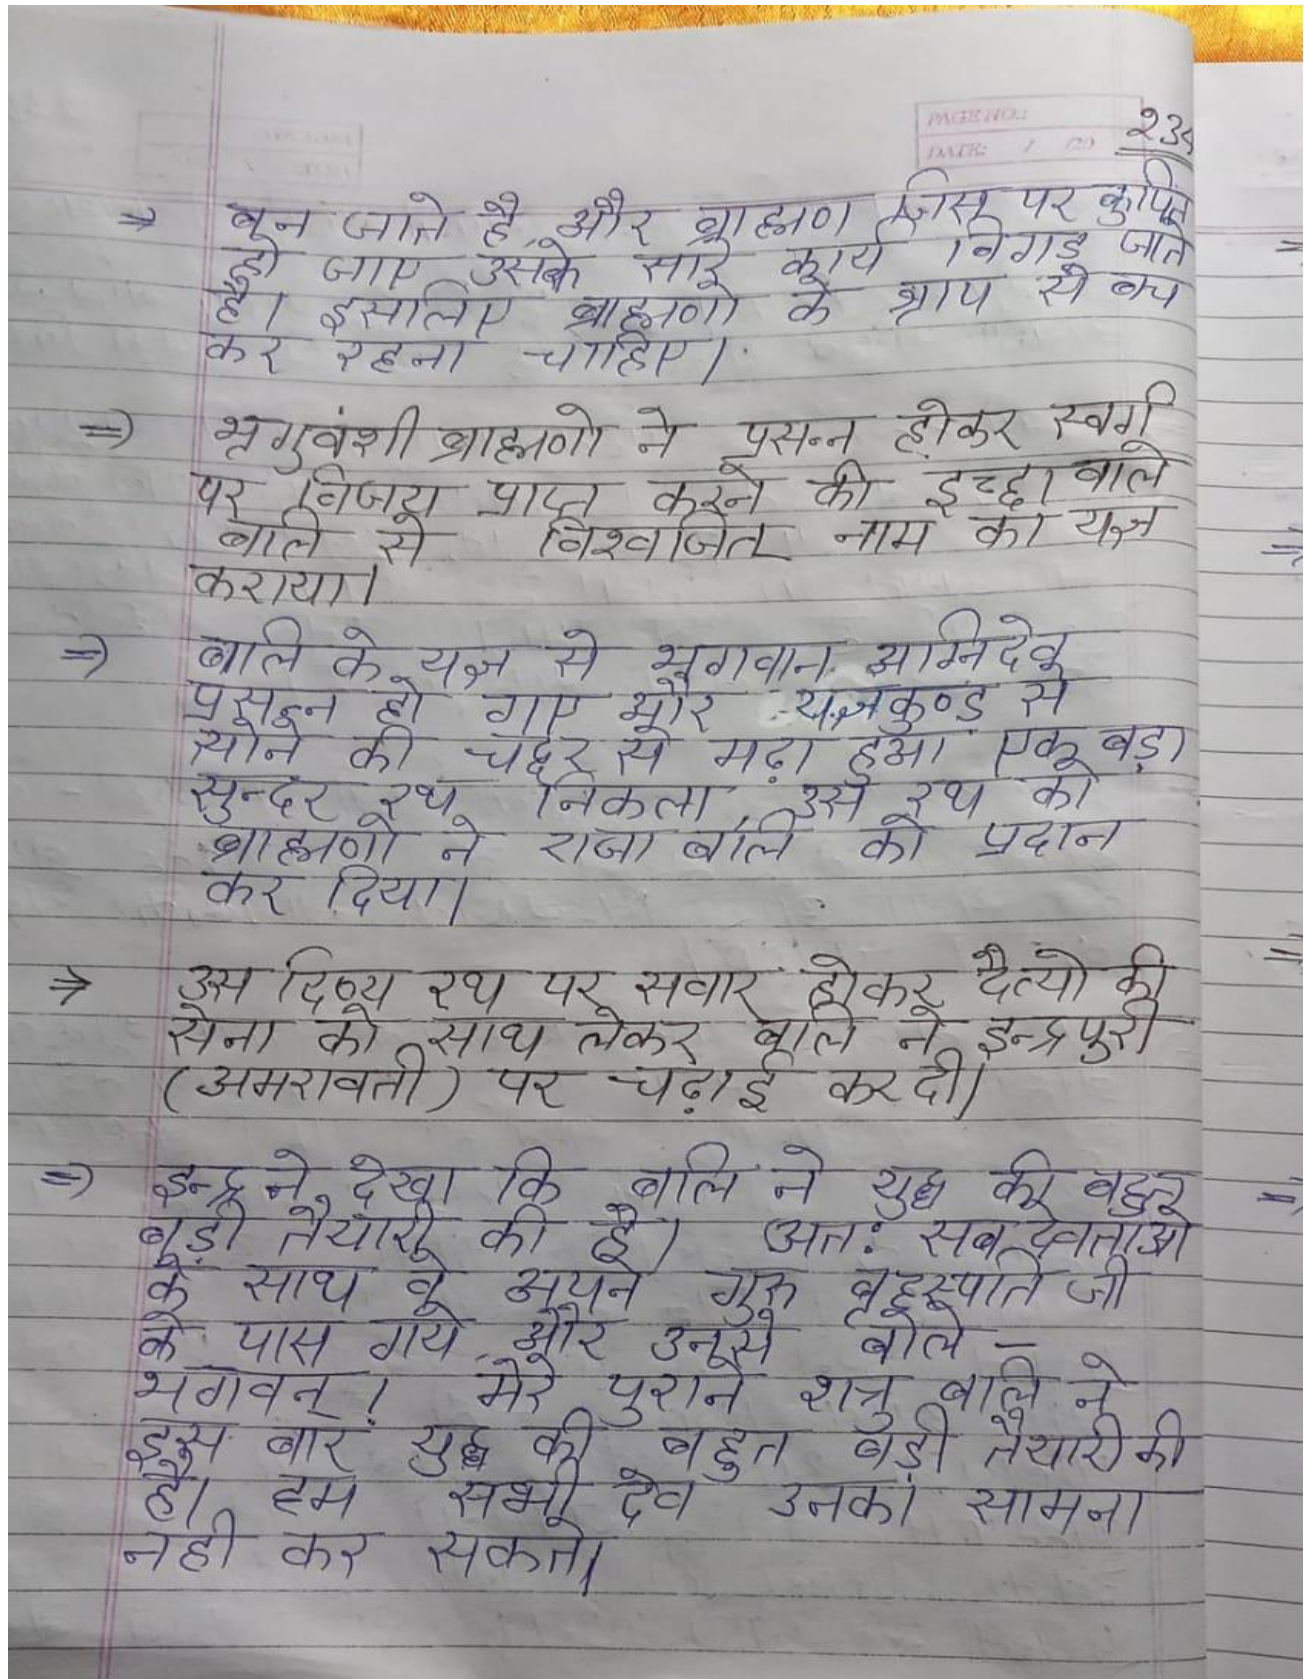 PAGE NO.:
DATE: / /20
234
⇒ बन जाते है, और ब्राह्मण जिस पर कुपित
हो जाए उसके सारे कार्य बिगड जाते
है। इसलिए ब्राह्मणो के श्राप से बच
कर रहना चाहिए।
⇒ भृगुवंशी ब्राह्मणो ने प्रसन्न होकर स्वर्ग
पर विजय प्राप्त करने की इच्छा वाले
बलि से विश्वजित नाम का यज्ञ
कराया।
⇒ बालि के यज्ञ से भगवान अग्निदेव
प्रसन्न हो गए और यज्ञकुण्ड से
सोने की चद्दर से मढ़ा हुआ एक बड़ा
सुन्दर रथ निकला, उस रथ को
ब्राह्मणो ने राजा बलि को प्रदान
कर दिया।
⇒ उस दिव्य रथ पर सवार होकर दैत्यो की
सेना को साथ लेकर बलि ने इन्द्रपुरी
(अमरावती) पर चढ़ाई कर दी।
⇒ इन्द्र ने देखा कि बालि ने युद्ध की बहुत
बड़ी तैयारी की है। अतः सब देवताओ
के साथ वे अपने गुरु बृहस्पति जी
के पास गये और उनसे बोले -
भगवन्! मेरे पुराने शत्रु बलि ने
इस बार युद्ध की बहुत बड़ी तैयारी की
है। हम सभी देव उनका सामना
नही कर सकते।